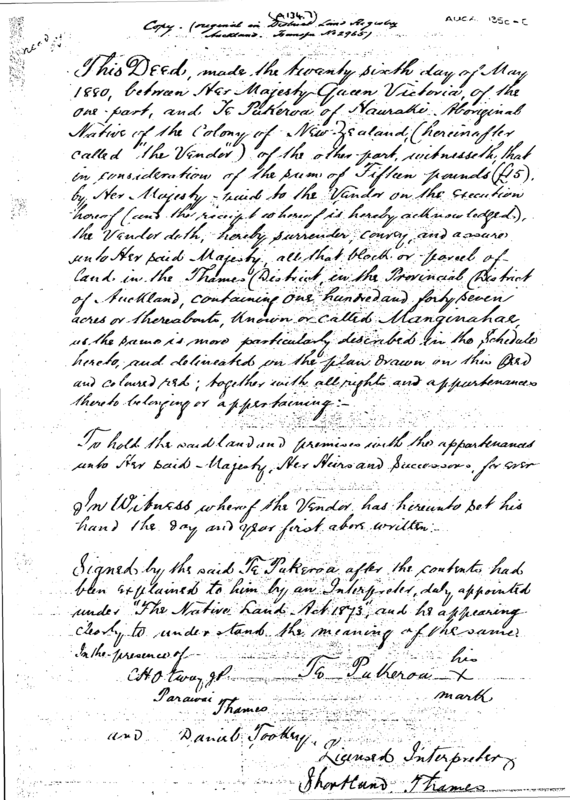 (A 134.7)
Copy. (original in District Land Registry
Auckland. Transfer No 2965)
AUCK 135c-c
This Deed, made the twenty sixth day of May
1880, between Her Majesty Queen Victoria, of the
one part, and Te Pukeroa of Hauraki Aboriginal
Native of the Colony of New Zealand, (hereinafter
called "the Vendor") of the other part, witnesseth, that
in consideration of the sum of Fifteen pounds (£15),
by Her Majesty paid to the Vendor on the execution
hereof (and the receipt whereof is hereby acknowledged),
the Vendor doth, hereby surrender, convey, and assure
unto Her said Majesty, all that block or parcel of
Land in the Thames District, in the Provincial District
of Auckland, containing one hundred and forty seven
acres or thereabouts, known or called Manginahae,
as the same is more particularly described in the Schedule
hereto, and delineated on the plan drawn on this Deed
and coloured red; together with all rights and appurtenances
thereto belonging or appertaining:-
To hold the said land and premises with the appurtenances
unto Her said Majesty, Her Heirs and Successors, for ever
In Witness whereof the Vendor, has hereunto set his
hand the day and year first above written.
Signed by the said Te Pukeroa after the contents had
been explained to him by an Interpreter, duly appointed
under "The Native Land Act 1873", and he appearing
clearly to understand the meaning of the same
In the presence of
his
Te Pukeroa x
mark
J.P.
Parawai
Thames
and Daniel Tookey,
Licensed Interpreter
Shortland Thames